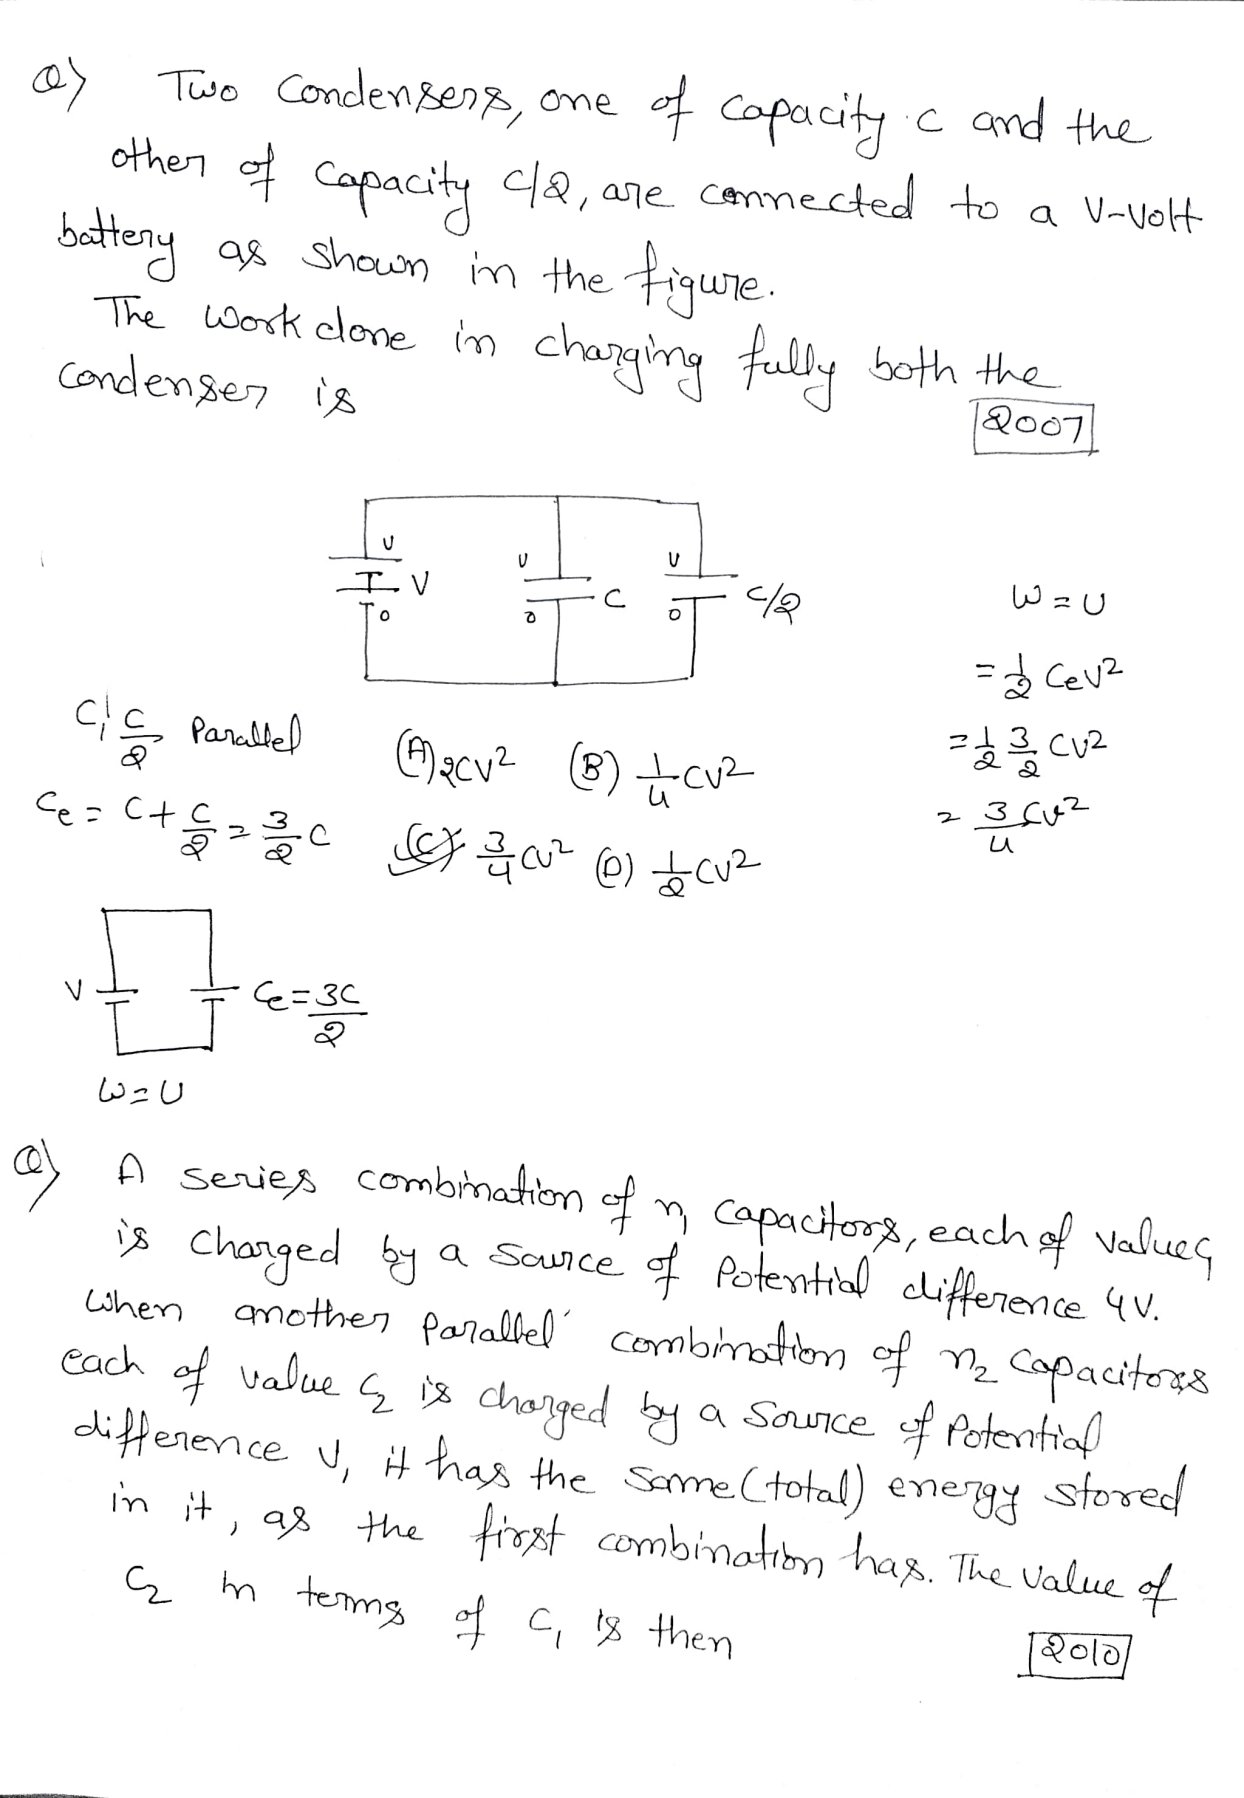 Q) Two condensers, one of capacity C and the
other of capacity C/2, are connected to a V-volt
battery as shown in the figure.
The work done in charging fully both the
condenser is
2007
V
V
V
V
C
C/2
0
0
0
W = U
= 1/2 CeV²
= 1/2 3/2 CV²
= 3/4 CV²
C, C/2 Parallel
Ce = C + C/2 = 3/2 C
(A) 2CV² (B) 1/4 CV²
(C) 3/4 CV² (D) 1/2 CV²
V
Ce = 3C/2
W = U
Q) A series combination of n₁ capacitors, each of value C₁
is charged by a source of Potential difference 4V.
when another parallel combination of n₂ capacitors
each of value C₂ is charged by a source of Potential
difference V, it has the same (total) energy stored
in it, as the first combination has. The value of
C₂ in terms of C₁ is then
2010